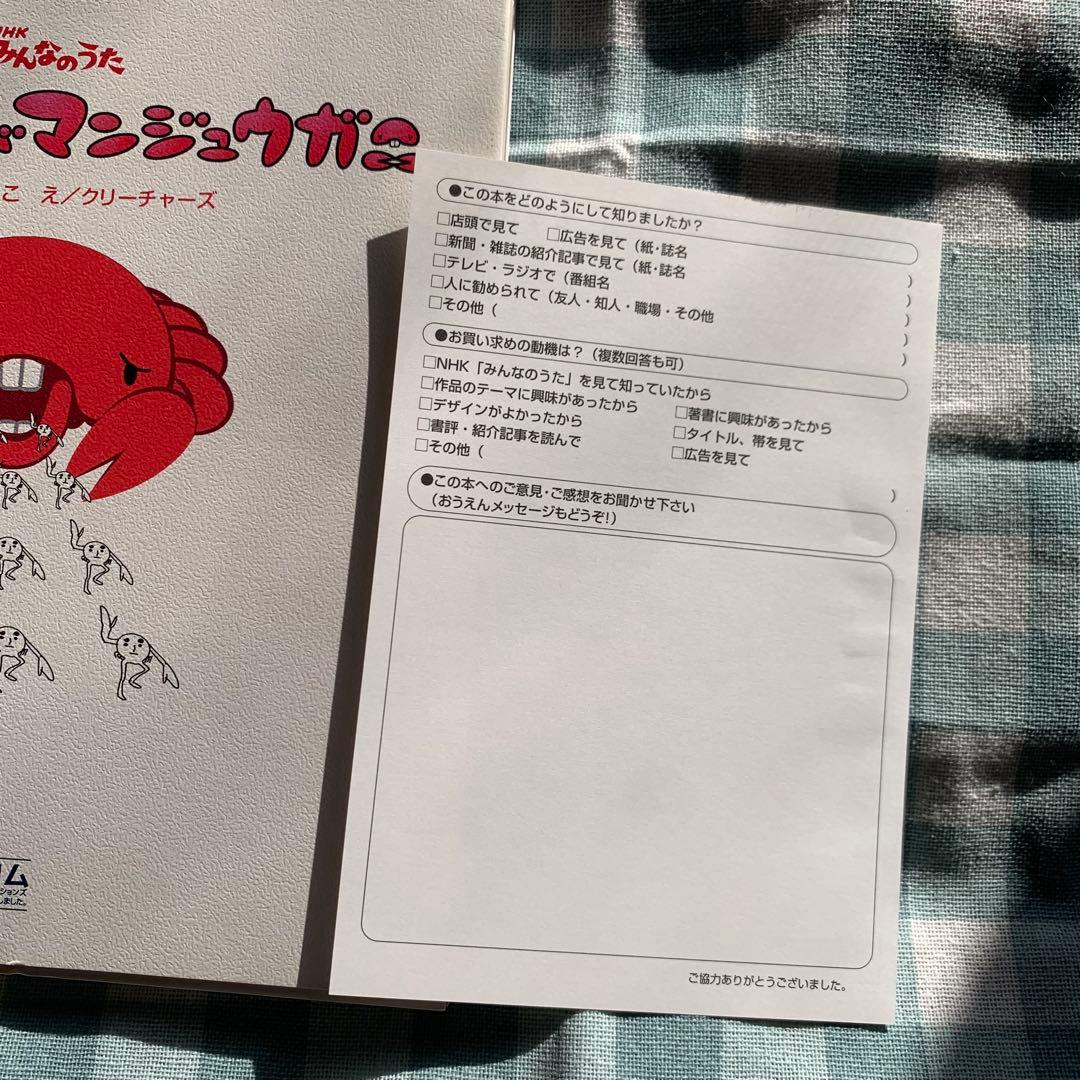 NHK
みんなのうた
マンジュウガニ
こ え／クリーチャーズ
ション
しました。
●この本をどのようにして知りましたか？
□店頭で見て □広告を見て（紙・誌名 ）
□新聞・雑誌の紹介記事で見て（紙・誌名 ）
□テレビ・ラジオで（番組名 ）
□人に勧められて（友人・知人・職場・その他 ）
□その他（ ）
●お買い求めの動機は？（複数回答も可）
□NHK「みんなのうた」を見て知っていたから
□作品のテーマに興味があったから □著書に興味があったから
□デザインがよかったから □タイトル、帯を見て
□書評・紹介記事を読んで □広告を見て
□その他（ ）
●この本へのご意見・ご感想をお聞かせ下さい
（おうえんメッセージもどうぞ！）
ご協力ありがとうございました。